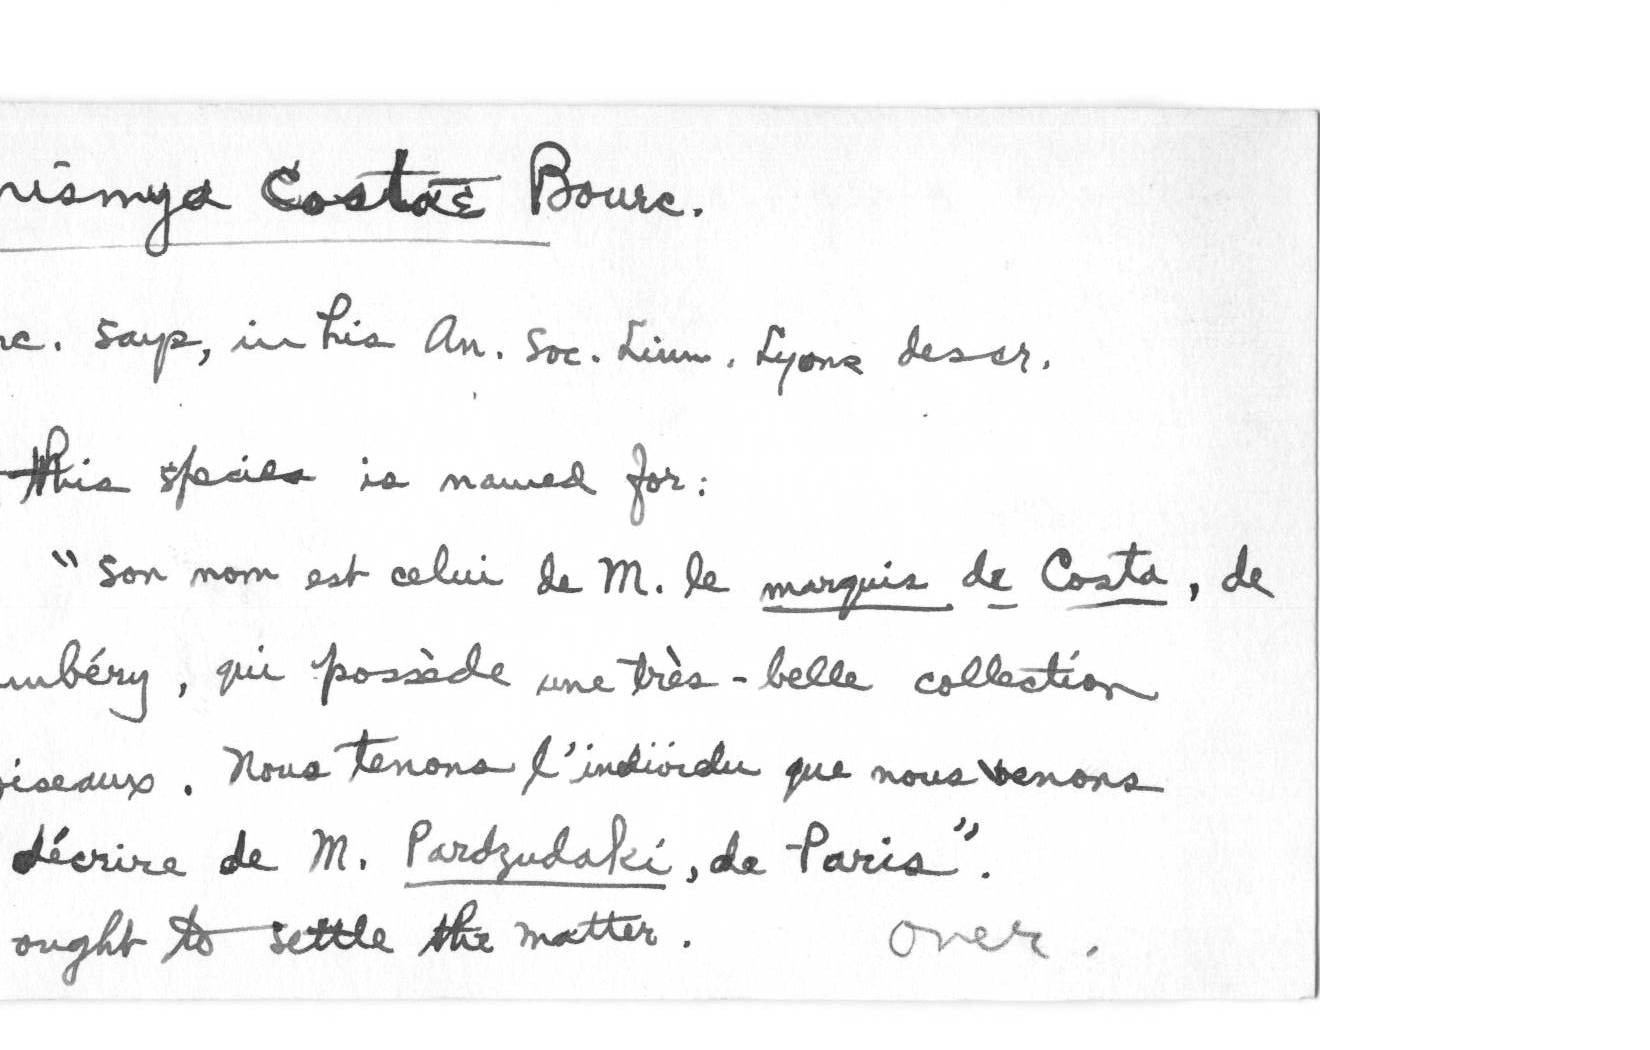 nismya Costae Bourc.
rc. says, in his An. Soc. Linn. Lyons descr.
this species is named for:
"son nom est celui de M. le marquis de Costa, de
mbéry, qui possède une très-belle collection
oiseaux. Nous tenons l'individu que nous venons
décrire de M. Pardzudaki, de Paris".
ought to settle the matter. over.